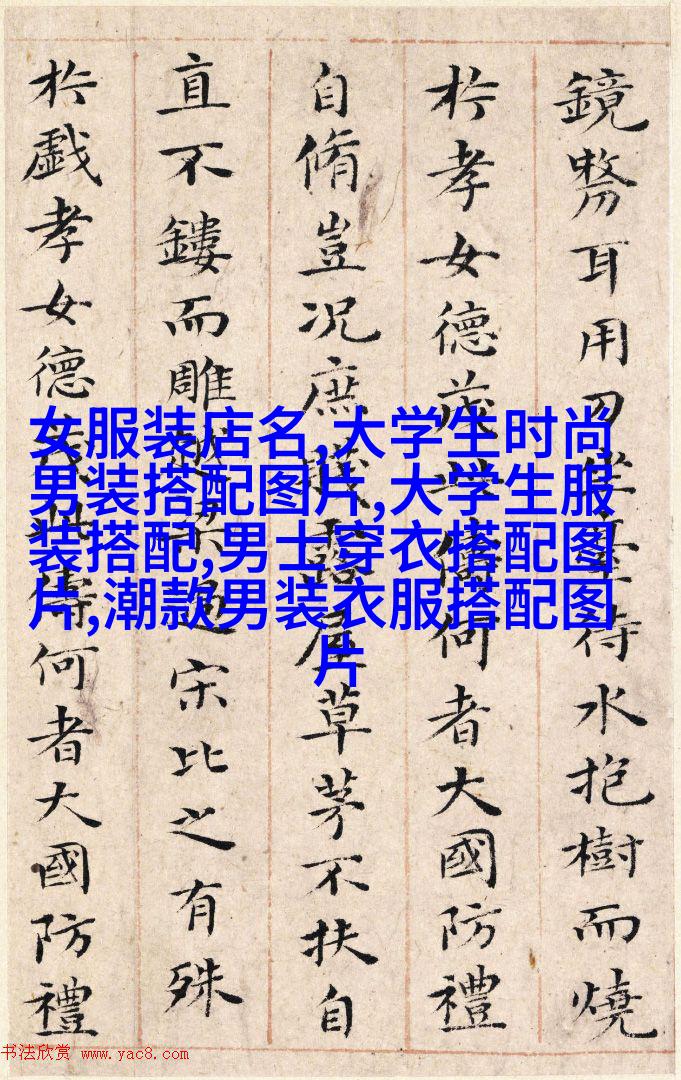 鏡耳用刀待水抱樹而燒
扵孝女德茂此儔何者大國防禮
自脩豈况庶賤露屋草茅不扶自
直不鏤而雕越梁過宋比之有殊
扵戲孝女德茂此儔何者大國防禮
女服装店名,大学生时尚
男装搭配图片,大学生服
装搭配,男士穿衣搭配图
片,潮款男装衣服搭配图
片
书法欣赏 www.yac8.com